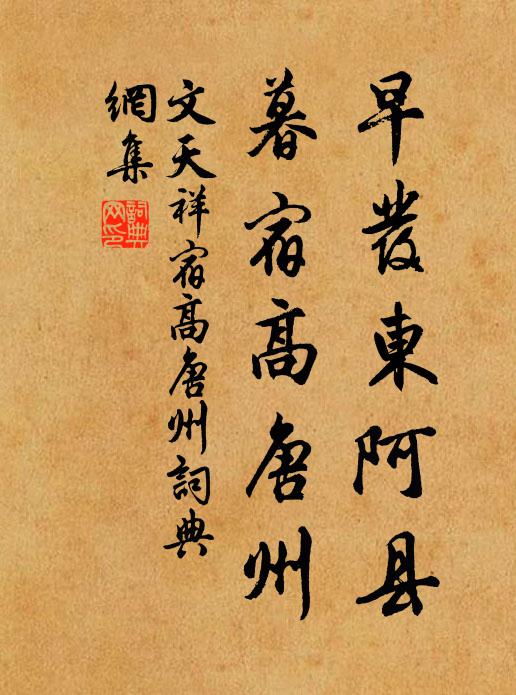 早發東阿县
暮宿高唐州
文天祥宿高唐州詞典
網集
詞典
网印